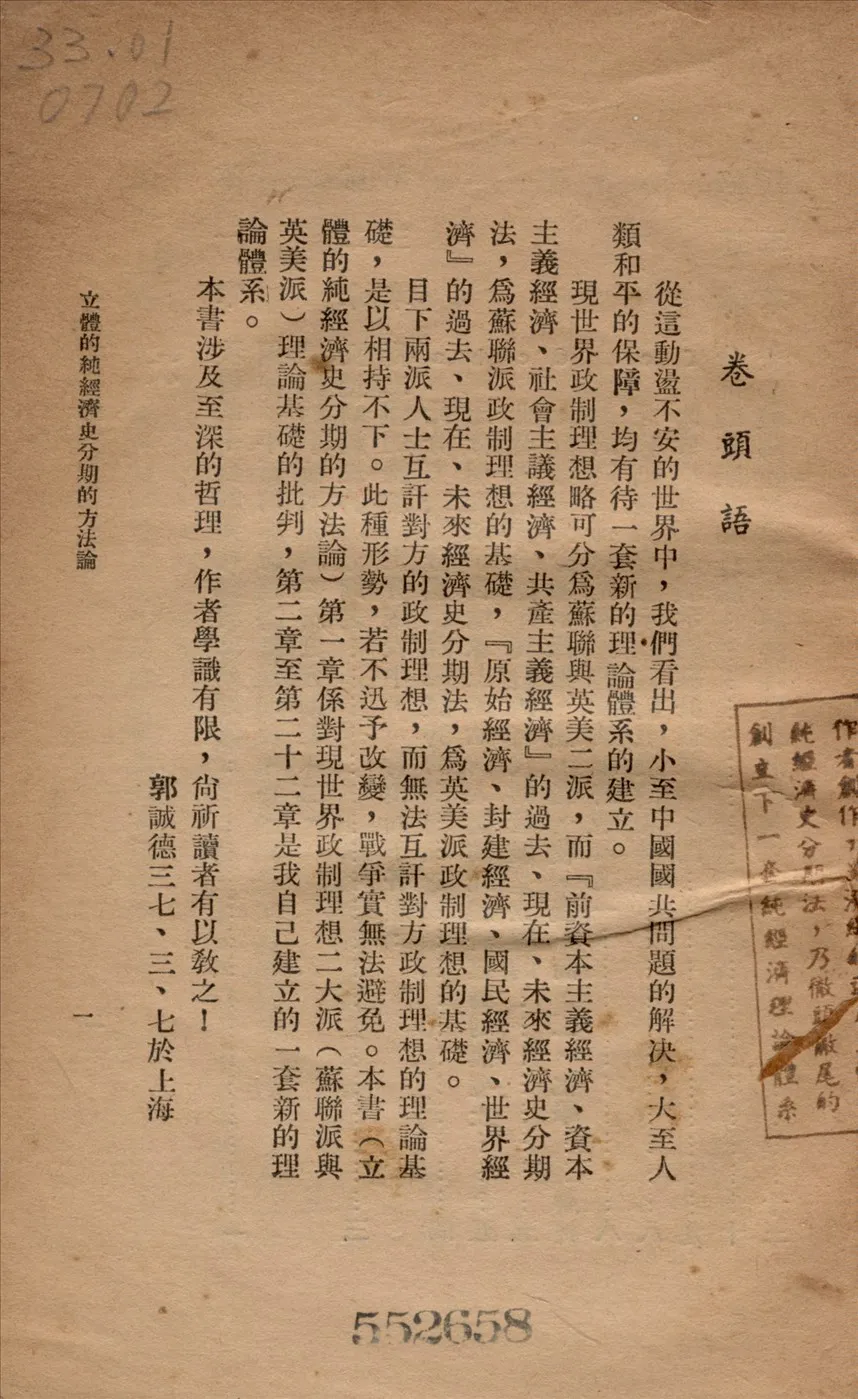 33.01
0702
卷頭語
從這動盪不安的世界中，我們看出，小至中國國共問題的解决，大至人
類和平的保障，均有待一套新的理論體系的建立。
現世界政制理想略可分爲蘇聯與英美二派，而『前資本主義經濟、資本
主義經濟、社會主議經濟、共產主義經濟』的過去、現在、未來經濟史分期
法，爲蘇聯派政制理想的基礎，『原始經濟、封建經濟、國民經濟、世界經
濟』的過去、現在、未來經濟史分期法，爲英美派政制理想的基礎。
目下兩派人士互訐對方的政制理想，而無法互訐對方政制理想的理論基
礎，是以相持不下。此種形勢，若不迅予改變，戰爭實無法避免。本書（立
體的純經濟史分期的方法論）第一章係對現世界政制理想二大派（蘇聯派與
英美派）理論基礎的批判，第二章至第二十二章是我自己建立的一套新的理
論體系。
本書涉及至深的哲理，作者學識有限，尙祈讀者有以敎之！
郭誠德三七、三、七於上海
立體的純經濟史分期的方法論
一
作者創作，
純經濟史分期法，乃徹頭徹尾的
創立下一套純經濟理論體系
552658